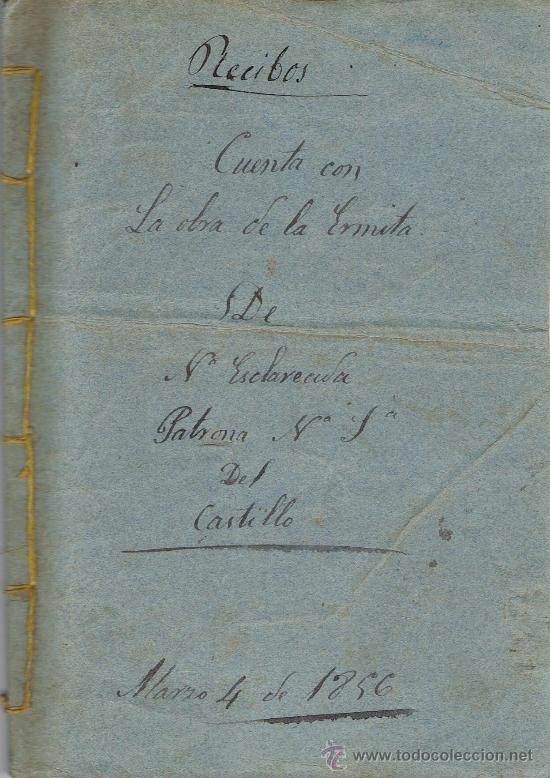 Recibos
Cuenta con
La obra de la Ermita
De
Nª Esclarecida
Patrona Nª Sª
Del
Castillo
Marzo 4 de 1856
www.todocoleccion.net